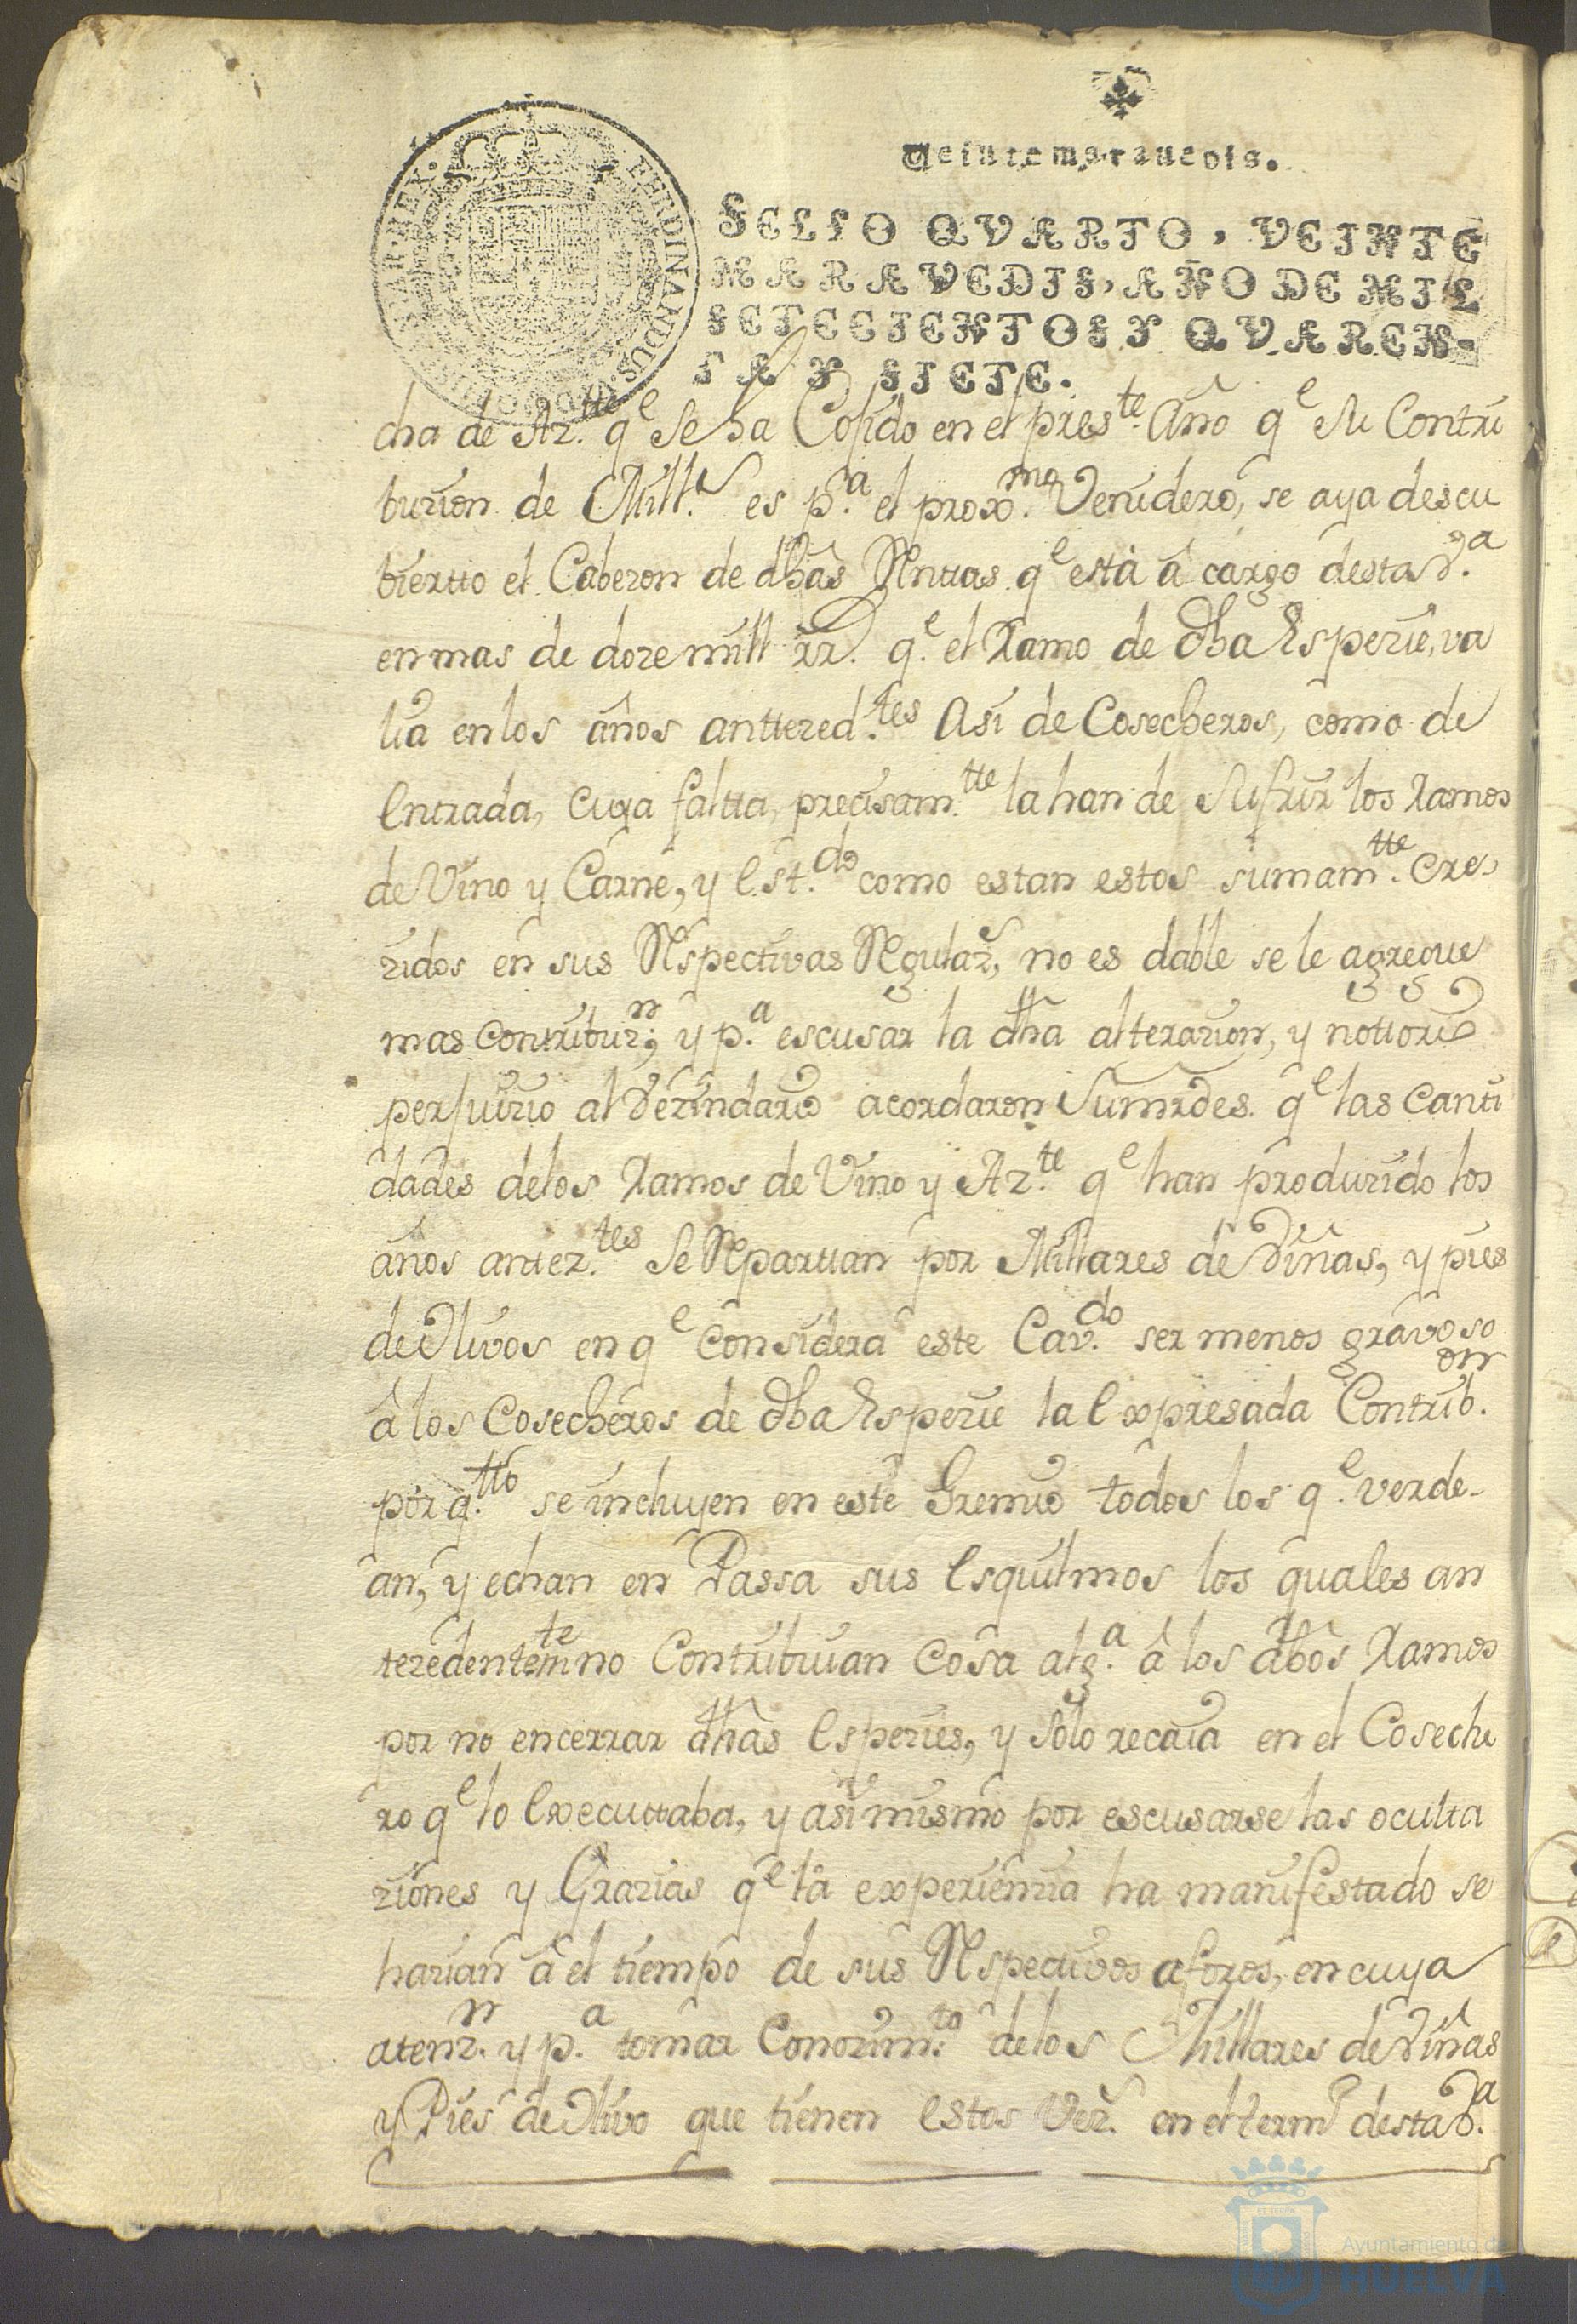 Veinte maravedis.
SELLO QVARTO, VEINTE
MARAVEDIS, AÑO DE MIL
SETECIENTOS Y QVAREN-
TA Y SIETE.
FERDINANDUS
cha de Az.tte q.e Se ha Cojido en el pres.te Año q.e Su Contri
buzion de Mill.s es p.a el proxo.mo Venidero, se aya descu
biertto el Cabezon de dhas Renttas q.e està à cargo desta V.a
en mas de doze mill rr.s q.e el Ramo de dha Espezie, va
lia en los años anttezed.tes Asi de Cosecheros, como de
Entrada, Cuya faltta, precisam.tte la han de Sufrir los Ramos
de Vino y Carne, y Est.do como estan estos sumam.tte Cre
zidos en sus Respectivas Regulaz.s, no es dable se le agregue
mas contribuz.n; y p.a escusar la dha alterazion, y nottorio
perjuizio al Vezindario acordaron Sumrdes. q.e las Canti
dades de los Ramos de Vino y Az.te q.e han produzido los
años antez.tes Se Reparttan por Millares de Viñas, y pies
de Olivos en q.e Considera este Cav.do ser menos gravoso
à los Cosecheros de dha Espezie la Expresada Contrib.on
por q.tto se incluyen en este Gremio todos los q.e verde-
an, y echan en Passa sus Esquilmos los quales an
tezedentem.te no Contribuian Cosa alg.a à los dhos Ramos
por no encerrar dhas Espezies, y Solo recaia en el Coseche
ro q.e lo Executtaba, y asi mismo por escusarse las oculta
ziones y Grazias q.e la experienzia ha manifestado se
harian à el tiempo de sus Respectivos aforos, en cuya
atenz.n y p.a tomar Conozim.to de los Millares de Viñas
y Pies de Olivo que tienen Estos Vez.s en el term.o desta V.a
Ayuntamiento de
HUELVA